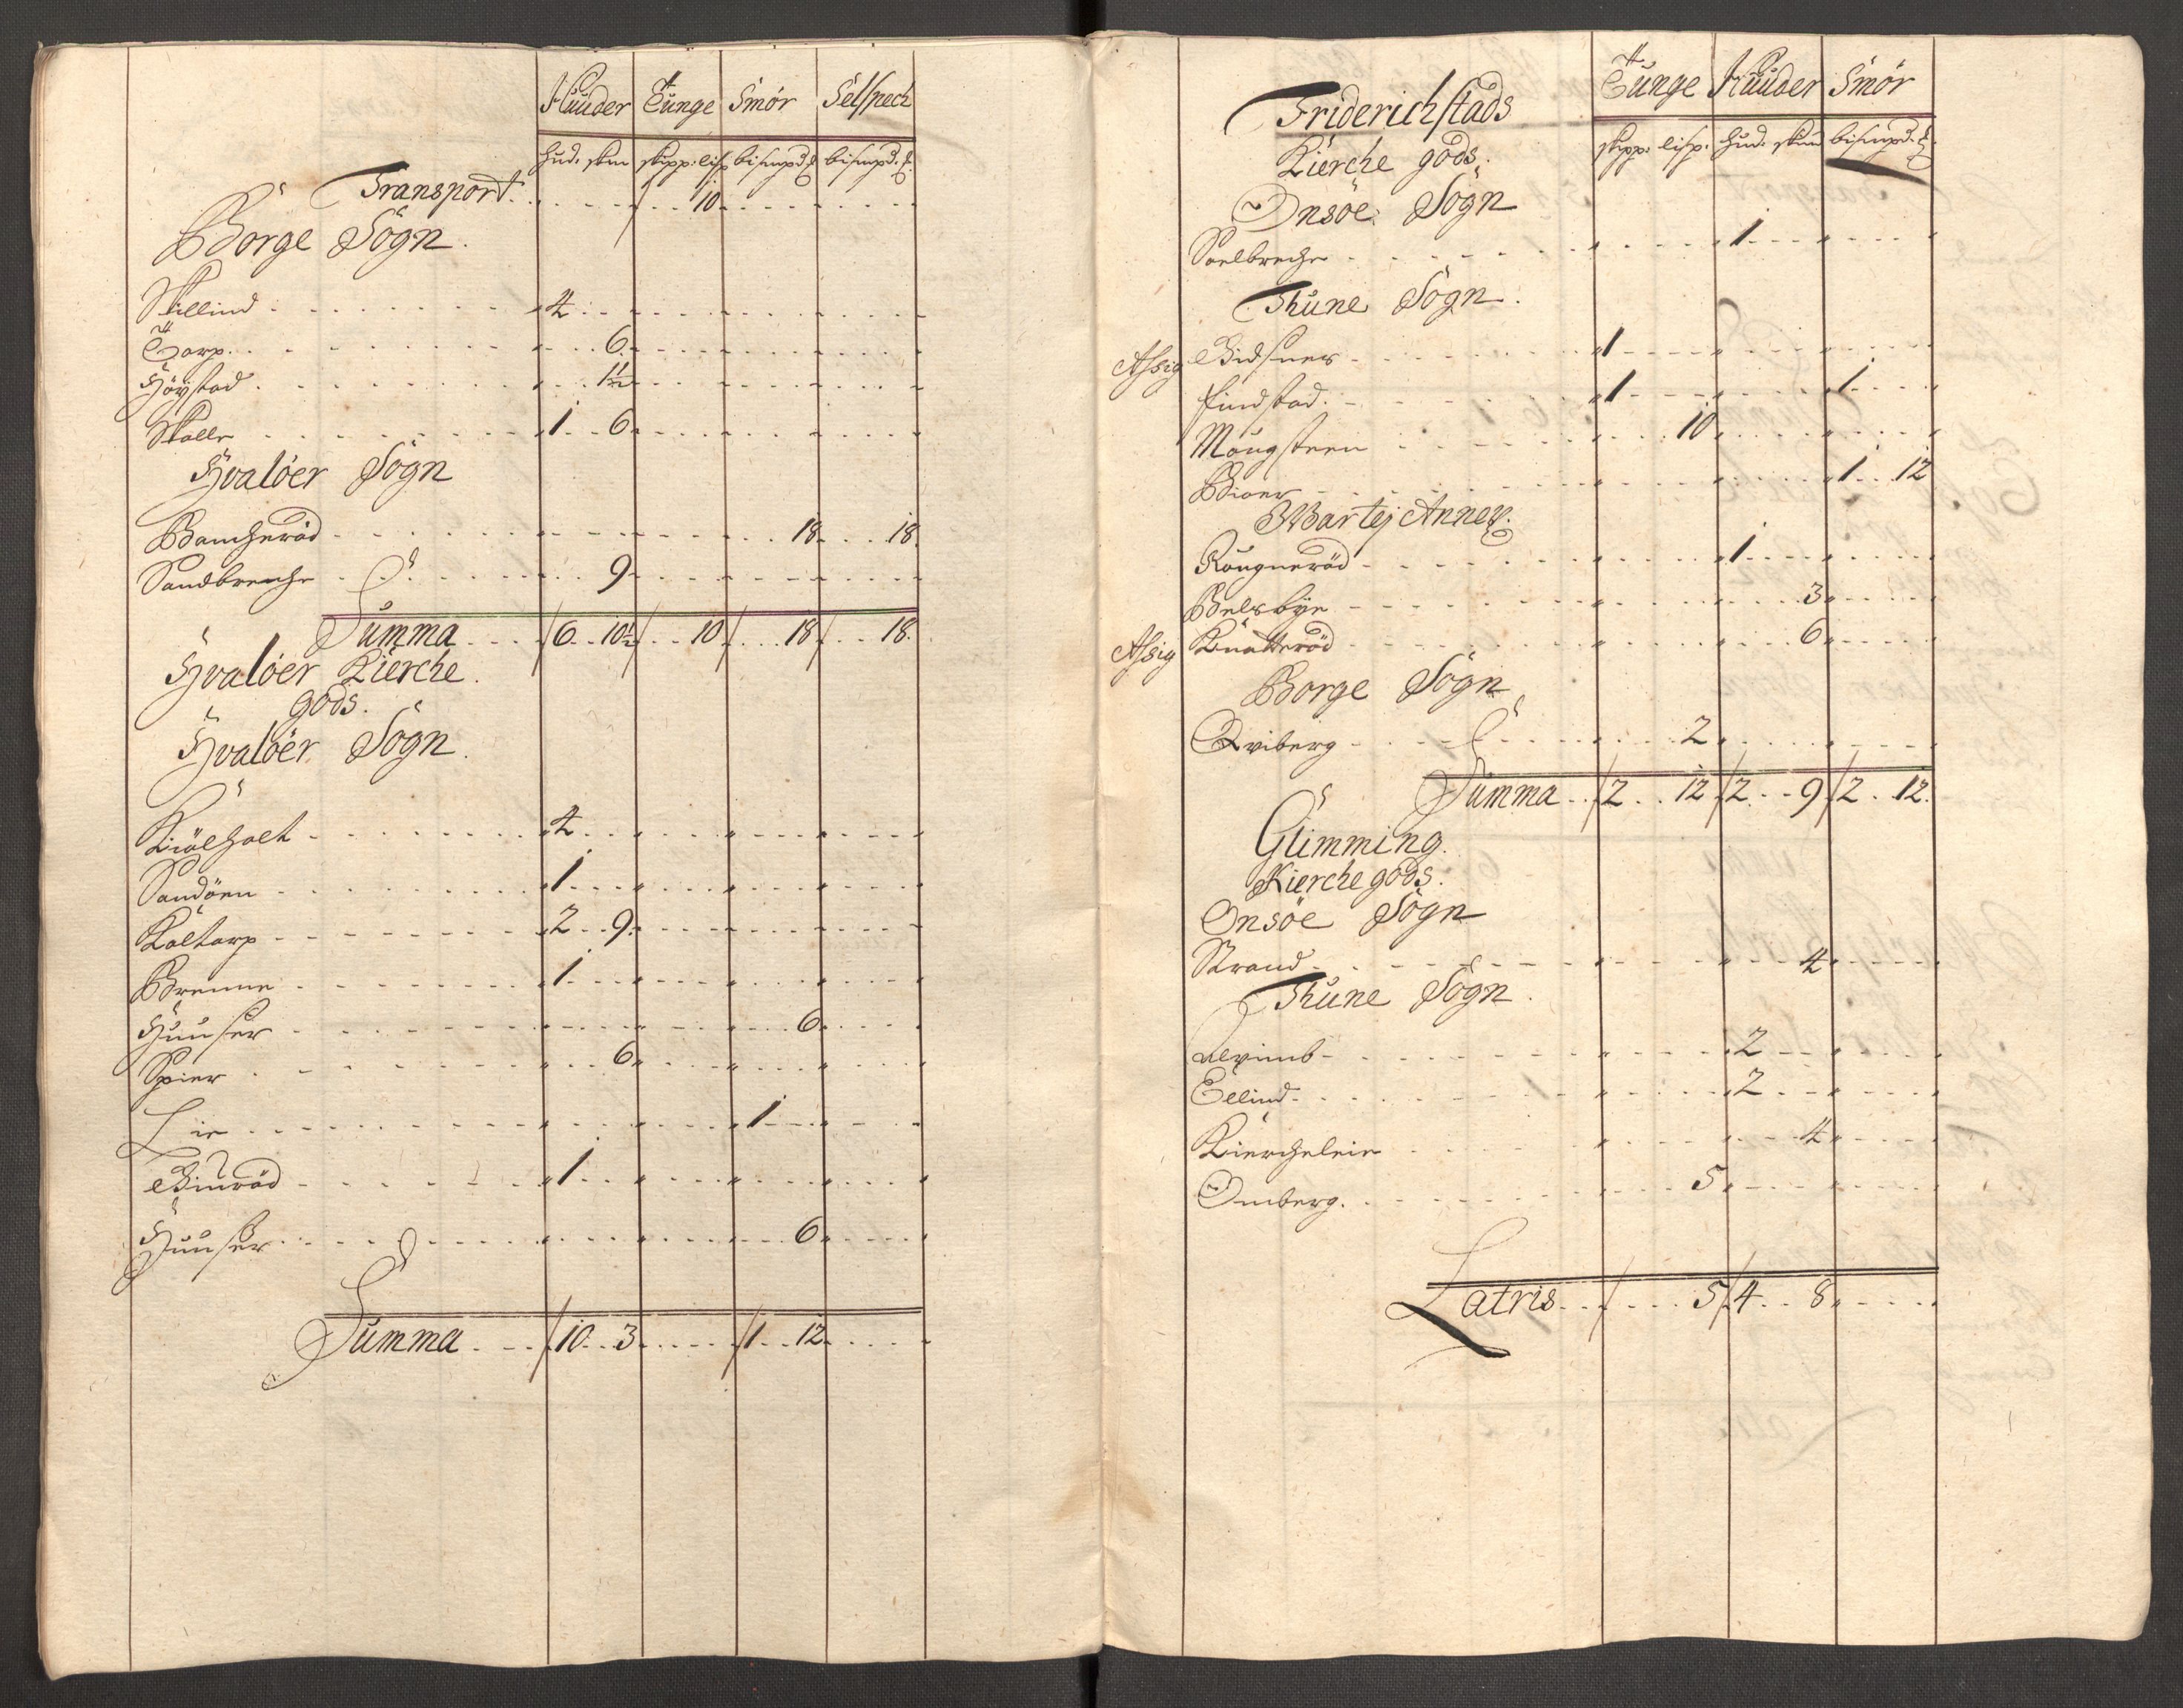 Huuder Tunge Smör Selspech
hud. skin skipp: lisp bismpd. ℔ bismpd. ℔
Transport. 10
Borge Sogn.
Skillind 4
Torp. 6
Höÿstad 1½
Skalle 1 6
Hvalöer Sogn
Bancheröd 18 18
Sandbreche 9
Summa 6 10½ 10 18 18
Hvalöer Kierche
gods.
Hvalöer Sogn.
Kiölholt 4
Sandöen 1
Koltorp 2 9
Brenne 1
Huuser 6
Spier 6
Lie 1
Binröd 1
Huuser 6
Summa 10 3 1 12
Tunge Huuder Smör
skipp: lisp. hud. skind bismpd. ℔
Friderichstads
Kierche gods.
Onsöe Sogn
Soelbreche 1
Thune Sogn.
Assig Bidsner 1
findstad 1 1
Mougsteen 10
Bioer 1 12
Wartej Annex.
Rougneröd 1
Belsbÿe 3
Assig Knatteröd 6
Borge Sogn
Qviberg 2
Summa 2 12 2 9 2 12
Glimming.
Kierche gods.
Onsöe Sogn
Strand 4
Thune Sogn.
Alvimb 2
Ellind 2
Kiercheleie 4
Omberg. 5
Latris 5 4 8